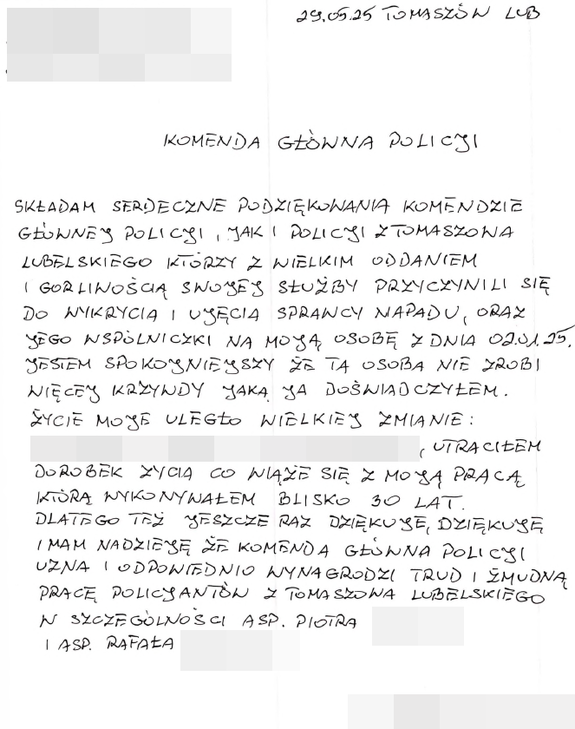 29.05.25 TOMASZÓW LUB
KOMENDA GŁÓWNA POLICJI
SKŁADAM SERDECZNE PODZIĘKOWANIA KOMENDZIE
GŁÓWNEJ POLICJI, JAK I POLICJI Z TOMASZOWA
LUBELSKIEGO KTÓRZY Z WIELKIM ODDANIEM
I GORLIWOŚCIĄ SWOJEJ SŁUŻBY PRZYCZYNILI SIĘ
DO WYKRYCIA I UJĘCIA SPRAWCY NAPADU, ORAZ
JEGO WSPÓLNICZKI NA MOJĄ OSOBĘ Z DNIA 02.01.25.
JESTEM SPOKOJNIEJSZY ŻE TA OSOBA NIE ZROBI
WIĘCEJ KRZYWDY JAKĄ JA DOŚWIADCZYŁEM.
ŻYCIE MOJE ULEGŁO WIELKIEJ ZMIANIE:
, UTRACIŁEM
DOROBEK ŻYCIA CO WIĄŻE SIĘ Z MOJĄ PRACĄ
KTÓRĄ WYKONYWAŁEM BLISKO 30 LAT.
DLATEGO TEŻ JESZCZE RAZ DZIĘKUJĘ, DZIĘKUJĘ
I MAM NADZIEJĘ ŻE KOMENDA GŁÓWNA POLICJI
UZNA I ODPOWIEDNIO WYNAGRODZI TRUD I ŻMUDNĄ
PRACĘ POLICJANTÓW Z TOMASZOWA LUBELSKIEGO
W SZCZEGÓLNOŚCI ASP. PIOTRA
I ASP. RAFAŁA